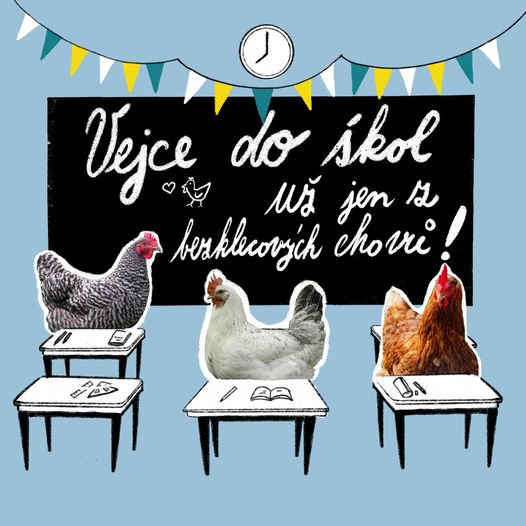 Vejce do škol
už jen z
bezklecových chovů!